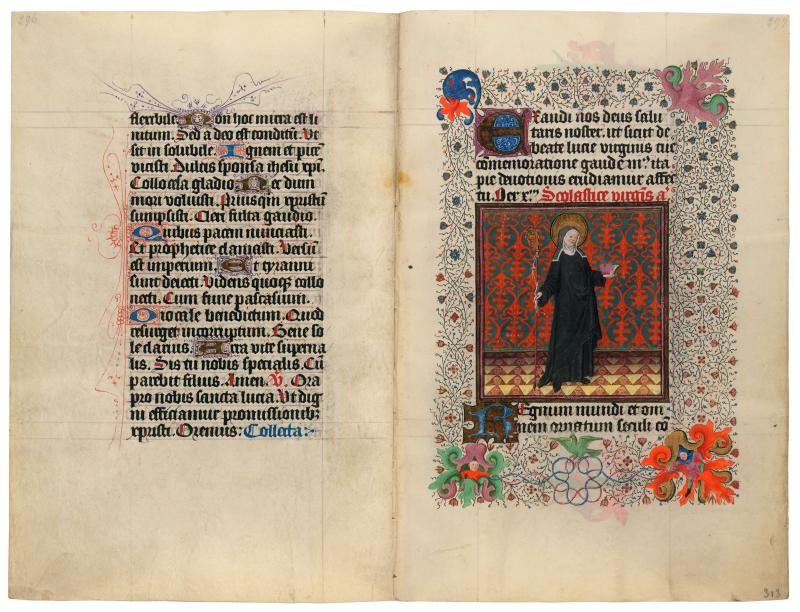 296
flexibile. Non hoc mitra est li
nitum. Sed a deo est conditū. Vt
sit in solubile. Ignem et picē
vicisti. Dulcis sponsa thesu xp̄i.
Collocasa gladio. Nec dum
mori voluisti. Priusq̄m xpristum
sumpsisti. Cleri fulta gaudio.
Quibus pacem nunciasti.
Et prophetice damasti. Versum
est imperium. Et tyranni
sunt deiecti. Videns quoqꝫ collo
necti. Cum fune pascasium.
O vocale benedictum. Quod
resurget incorruptum. Bene so
le clarius. Acta vite superna
lis. Sis tu nobis specialis. Cū
parebit filius. Amen. V. Ora
pro nobis sancta lucia. Vt dig
ni efficiamur promissionibꝫ
xpristi. Oremus: Collecta:
297
Exaudi nos deus salu
taris noster. ut sicut de
beate lucie virginis tue
cōmemoratione gaudem᷒. ita
pie deuotionis erudiamur affec
tu. Per x. Scolastice virgīs a.
Regnum mundi et om
nem ornatum seculi cō
313